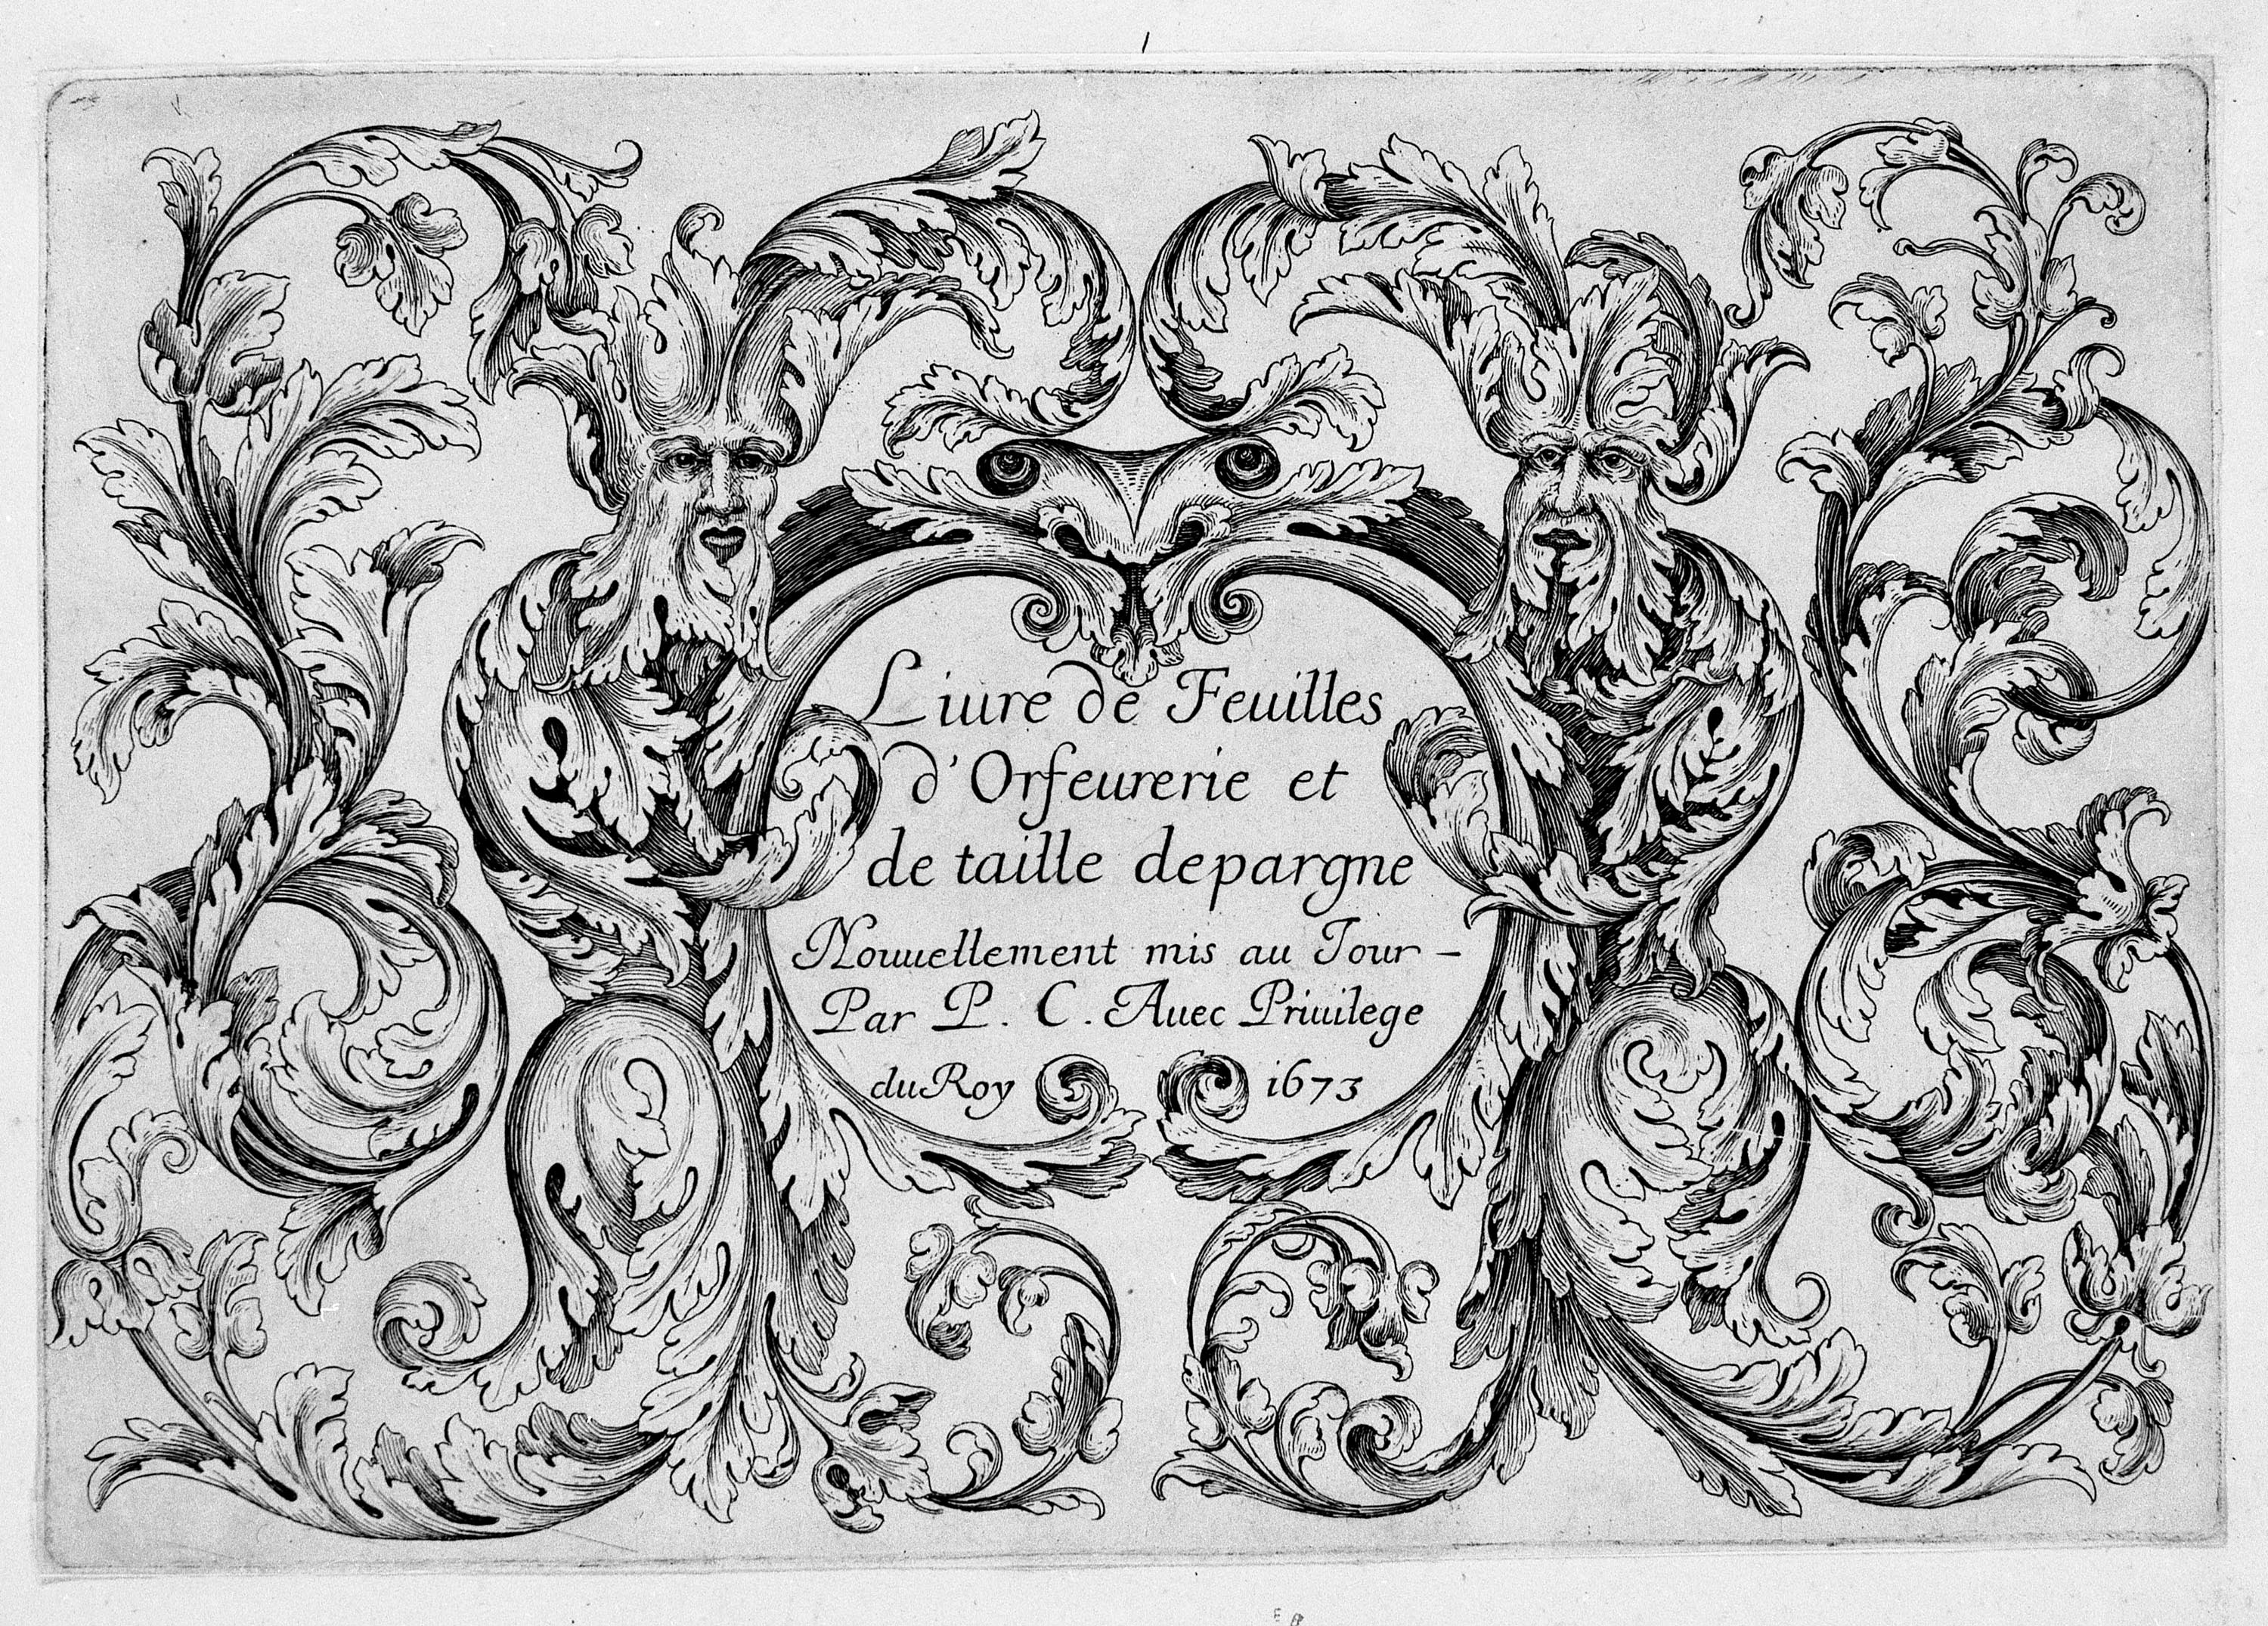 Liure de Feuilles
d'Orfeurerie et
de taille depargne
Nouuellement mis au Jour -
Par P. C. Auec Priuilege
du Roy 1673